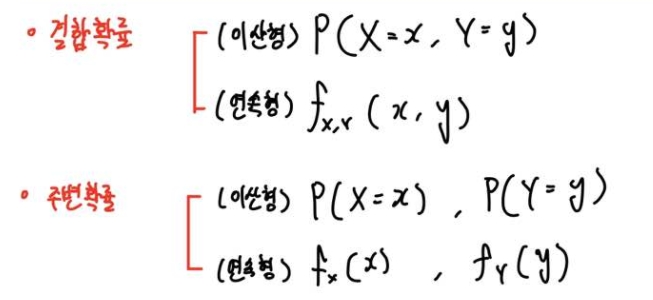 • 결합확률 (이산형) P(X=x, Y=y)
(연속형) f_{X,Y}(x, y)
• 주변확률 (이산형) P(X=x), P(Y=y)
(연속형) f_X(x), f_Y(y)